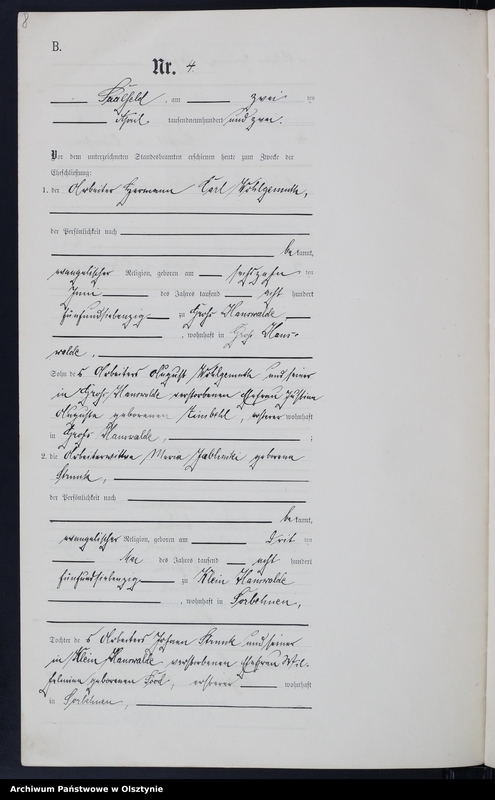 8
B.
Nr. 4.
Saalfeld, am zwei ten
April tausendneunhundert und zwei.
Vor dem unterzeichneten Standesbeamten erschienen heute zum Zwecke der
Eheschließung:
1. der Arbeiter Hermann Carl Wohlgemuth,
der Persönlichkeit nach
be kannt,
evangelischer Religion, geboren am sechszehn ten
Juni des Jahres tausend acht hundert
fünfundsiebenzig zu Groß Hanswalde
, wohnhaft in Groß Hans-
walde,
Sohn des Arbeiters August Wohlgemuth und seiner
in Groß Hanswalde verstorbenen Ehefrau Justine
Auguste geborenen, ersterer wohnhaft
in Groß Hanswalde, ;
2. die Arbeiterwittwe Maria geborene
der Persönlichkeit nach
be kannt,
evangelischer Religion, geboren am drit ten
Mai des Jahres tausend acht hundert
fünfundsiebenzig zu Klein Hanswalde
, wohnhaft in Sorbehnen,
Tochter des Arbeiters und seiner
in Klein Hanswalde verstorbenen Ehefrau Wil-
helmine geborenen, ersterer wohnhaft
in Sorbehnen,
Archiwum Państwowe w Olsztynie